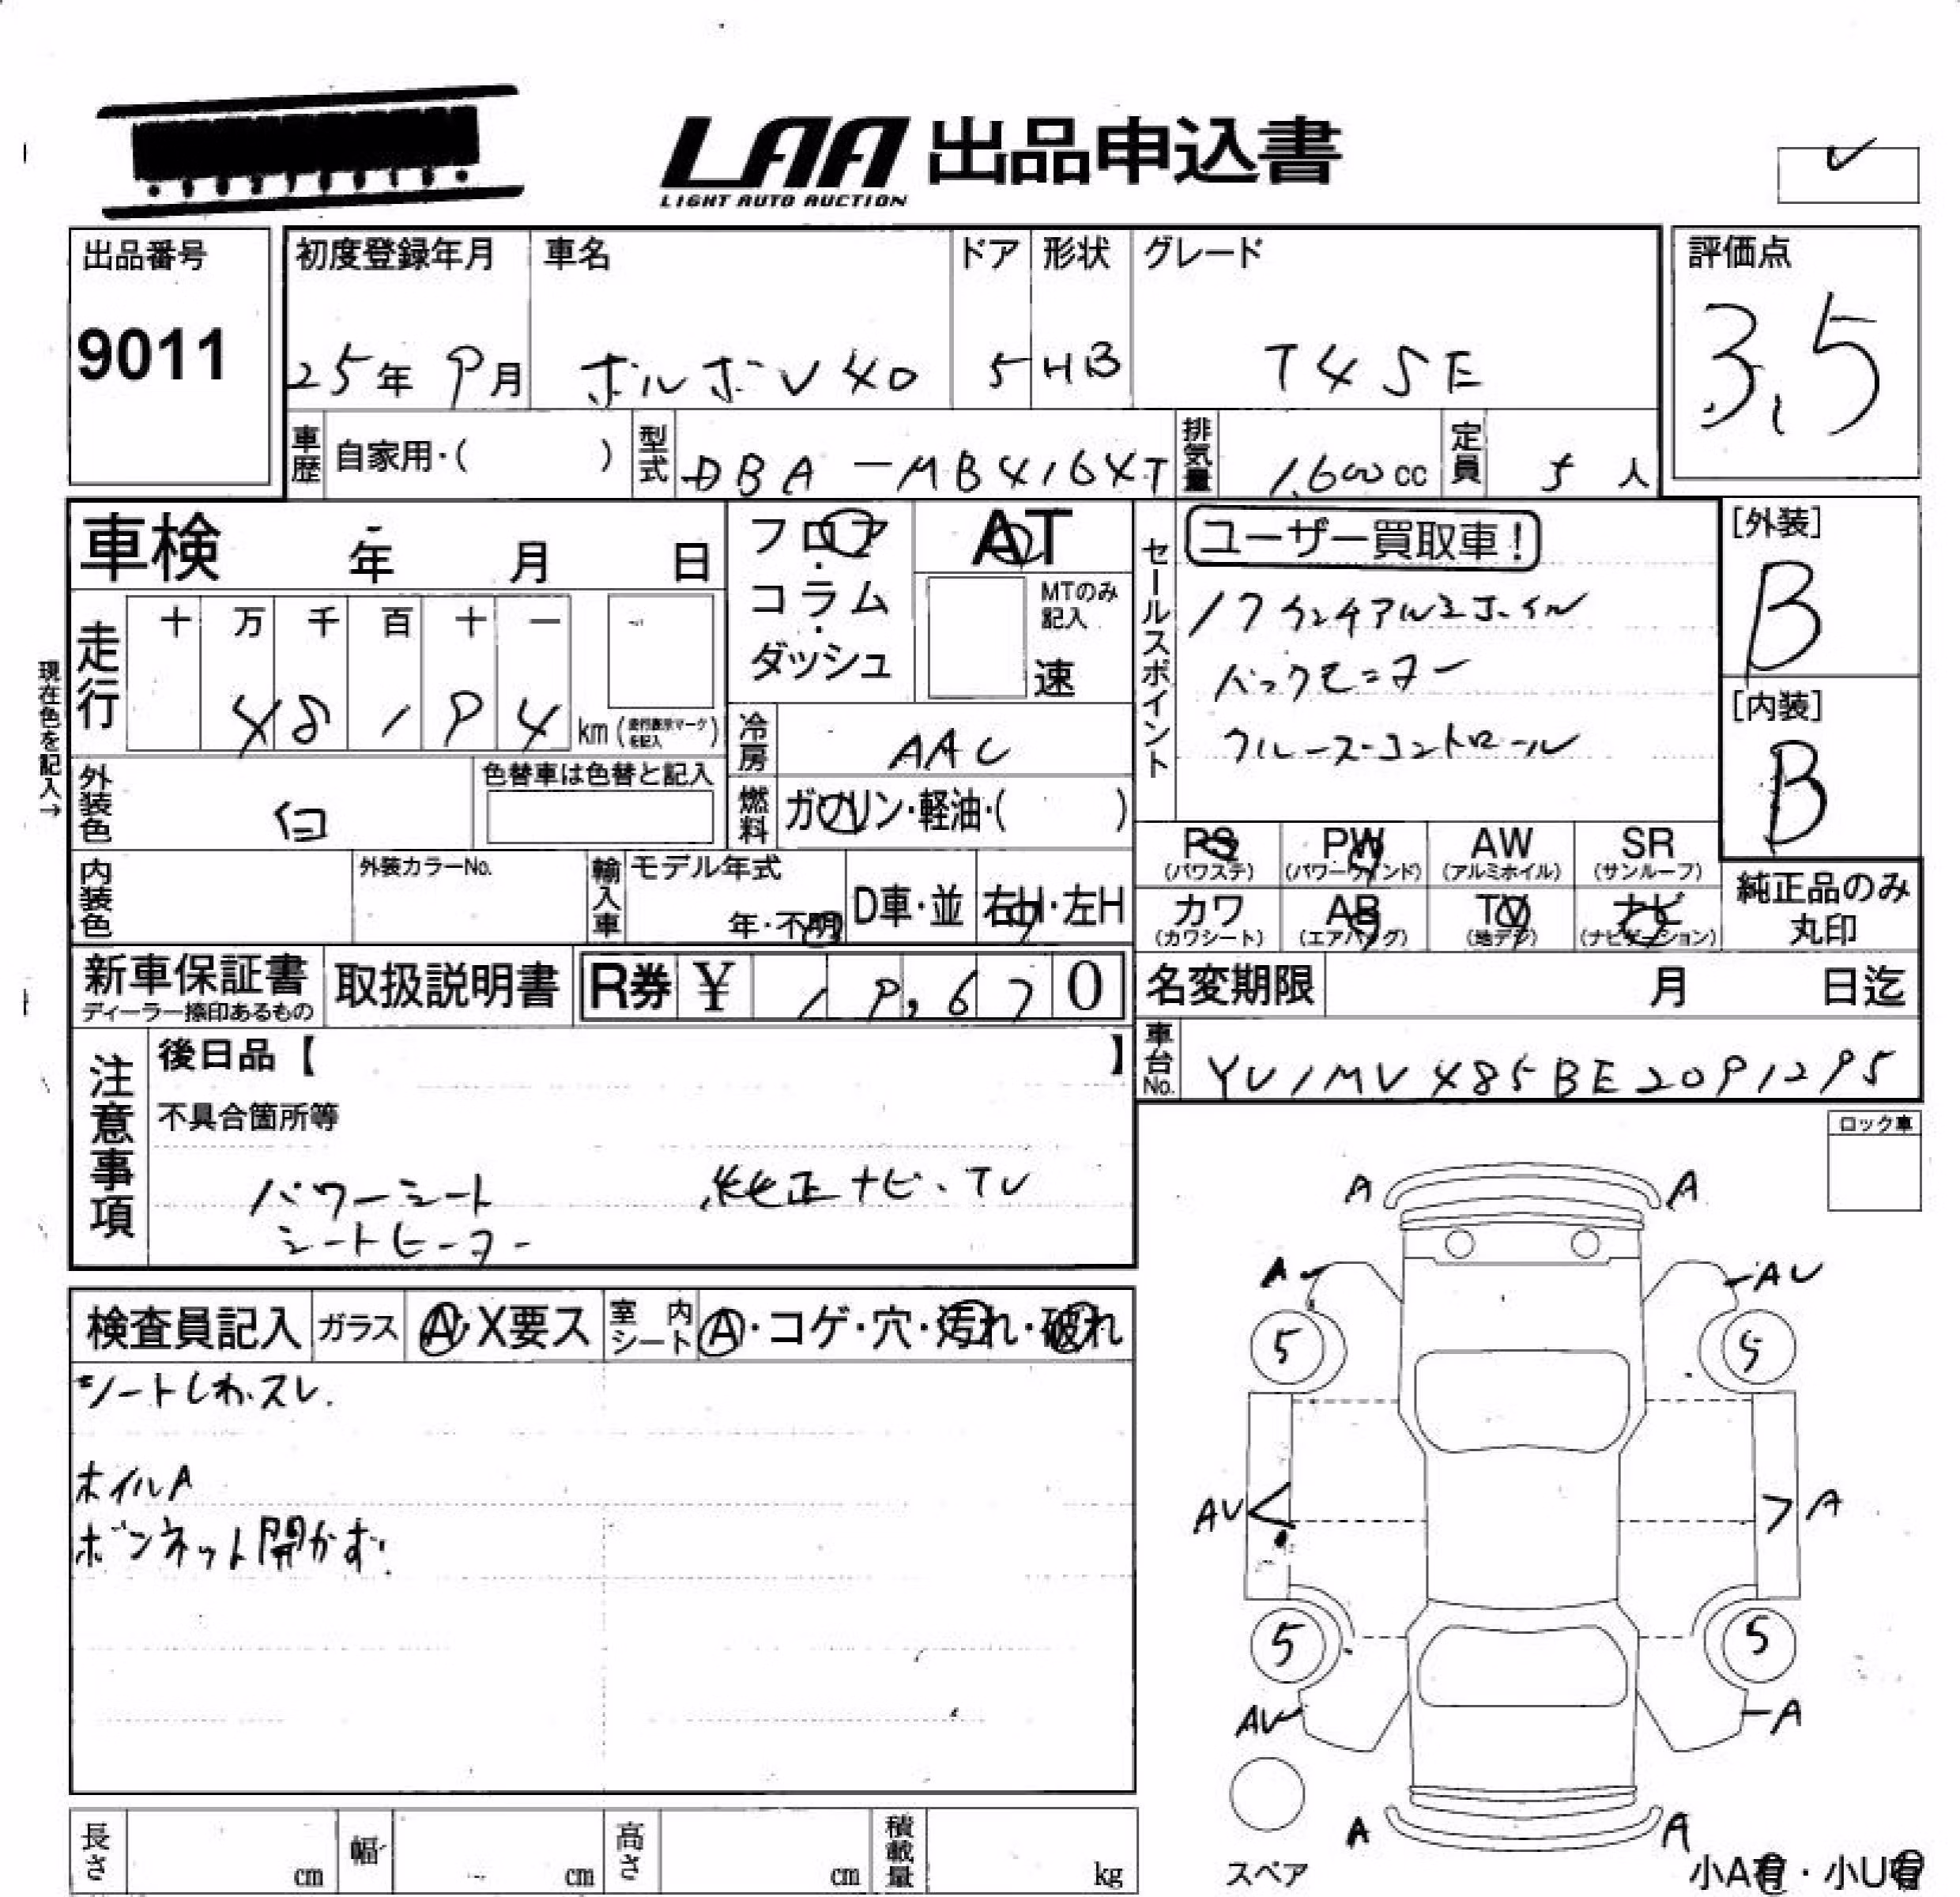 LAA 出品申込書
LIGHT AUTO AUCTION
出品番号
9011
初度登録年月
25年 9月
車名
ボルボV40
ドア
5
形状
HB
グレード
T4 SE
評価点
3.5
車歴 自家用・( )
型式 DBA-MB4164T
排気量 1,600cc
定員 5人
車検 年 月 日
フロア・コラム・ダッシュ
AT
MTのみ記入
速
セールスポイント
ユーザー買取車!
17インチアルミホイル
バックモニター
クルーズ・コントロール
[外装]
B
[内装]
B
現在色を記入→
走行 十 万 千 百 十 一
48194 km (走行表示マークを記入)
冷房 AAC
外装色
色替車は色替と記入
燃料 ガソリン・軽油・( )
内装色
外装カラーNo.
輸入車
モデル年式
年・不明
D車・並
右H・左H
PS (パワステ)
PW (パワーウインド)
AW (アルミホイル)
SR (サンルーフ)
カワ (カワシート)
AB (エアバッグ)
TV (地デジ)
ナビ (ナビゲーション)
純正品のみ丸印
新車保証書
ディーラー捺印あるもの
取扱説明書
R券 ¥ 19,670
名変期限 月 日迄
車台No. YV1MV485BE2091295
注意事項
後日品【 】
不具合箇所等
パワーシート 純正ナビ・TV
シートヒーター
ロック車
検査員記入
ガラス A・X要ス
室内シート A・コゲ・穴・汚れ・破れ
シートしわ・スレ.
ホイルA
ボンネット開かず.
A A
A AV
5 5
AV A
5 5
AV A
A A
スペア
小A有・小U有
長さ cm
幅 cm
高さ cm
積載量 kg